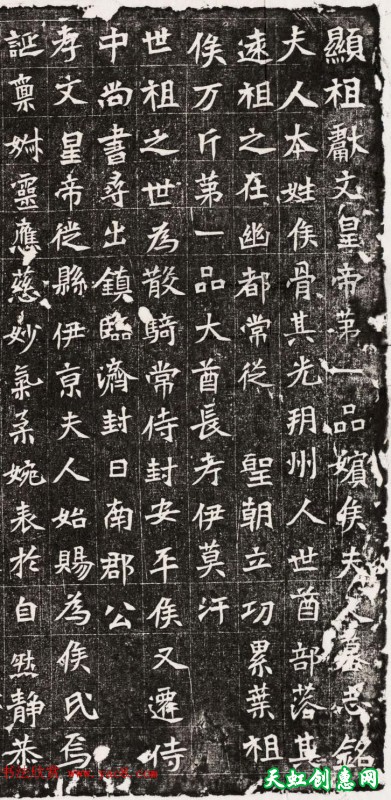 顯祖獻文皇帝第一品嬪侯夫人墓志銘
夫人本姓侯骨其先朔州人世酋部落其
遠祖之在幽都常從 聖朝立功累葉祖
俟万斤第一品大酋長考伊莫汗
世祖之世為散騎常侍封安平侯又遷侍
中尚書尋出鎮臨濟封日南郡公
孝文皇帝徙縣伊京夫人始賜為侯氏焉
誕稟婌靈應慈妙氣柔婉表於自然静恭
书法欣赏
天虹创意网